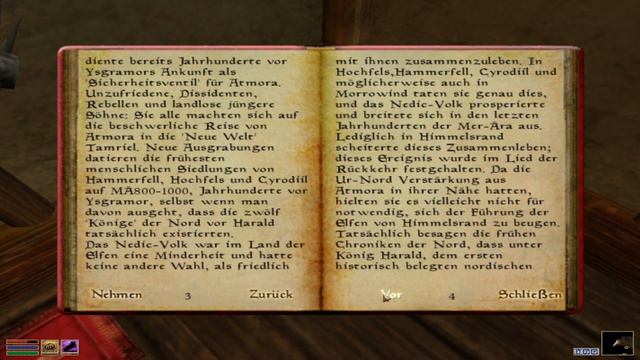 diente bereits Jahrhunderte vor
Ysgramors Ankunft als
'Sicherheitsventil' für Atmora.
Unzufriedene, Dissidenten,
Rebellen und landlose jüngere
Söhne: Sie alle machten sich auf
die beschwerliche Reise von
Atmora in die 'Neue Welt'
Tamriel. Neue Ausgrabungen
datieren die frühesten
menschlichen Siedlungen von
Hammerfell, Hochfels und Cyrodiil
auf MÄ800-1000, Jahrhunderte vor
Ysgramor, selbst wenn man
davon ausgeht, dass die zwölf
'Könige' der Nord vor Harald
tatsächlich existierten.
Das Nedic-Volk war im Land der
Elfen eine Minderheit und hatte
keine andere Wahl, als friedlich
mit ihnen zusammenzuleben. In
Hochfels,Hammerfell, Cyrodiil und
möglicherweise auch in
Morrowind taten sie genau dies,
und das Nedic-Volk prosperierte
und breitete sich in den letzten
Jahrhunderten der Mer-Ära aus.
Lediglich in Himmelsrand
scheiterte dieses Zusammenleben;
dieses Ereignis wurde im Lied der
Rückkehr festgehalten. Da die
Ur-Nord Verstärkung aus
Atmora in ihrer Nähe hatten,
hielten sie es vielleicht nicht für
notwendig, sich der Führung der
Elfen von Himmelsrand zu beugen.
Tatsächlich besagen die frühen
Chroniken der Nord, dass unter
König Harald, dem ersten
historisch belegten nordischen
Nehmen 3 Zurück Vor 4 Schließen